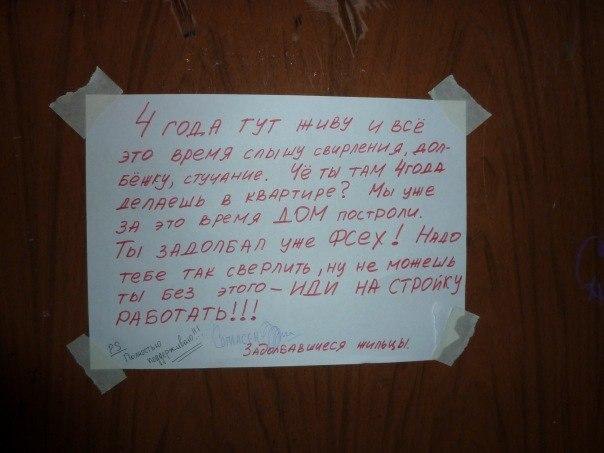 4 ГОДА ТУТ ЖИВУ И ВСЁ
ЭТО ВРЕМЯ СЛЫШУ СВИРЛЕНИЯ, ДОЛ-
БЁЖКУ, СТУЧАНИЕ. ЧЁ ТЫ ТАМ 4 ГОДА
ДЕЛАЕШЬ В КВАРТИРЕ? МЫ УЖЕ
ЗА ЭТО ВРЕМЯ ДОМ ПОСТРОЛИ.
ТЫ ЗАДОЛБАЛ УЖЕ ФСЕХ! НАДО
ТЕБЕ ТАК СВЕРЛИТЬ, НУ НЕ МОЖЕШЬ
ТЫ БЕЗ ЭТОГО – ИДИ НА СТРОЙКУ
РАБОТАТЬ!!!
PS Полностью поддерживаю!!!
Согласен
ЗАДОЛБАВШИЕСЯ ЖИЛЬЦЫ.